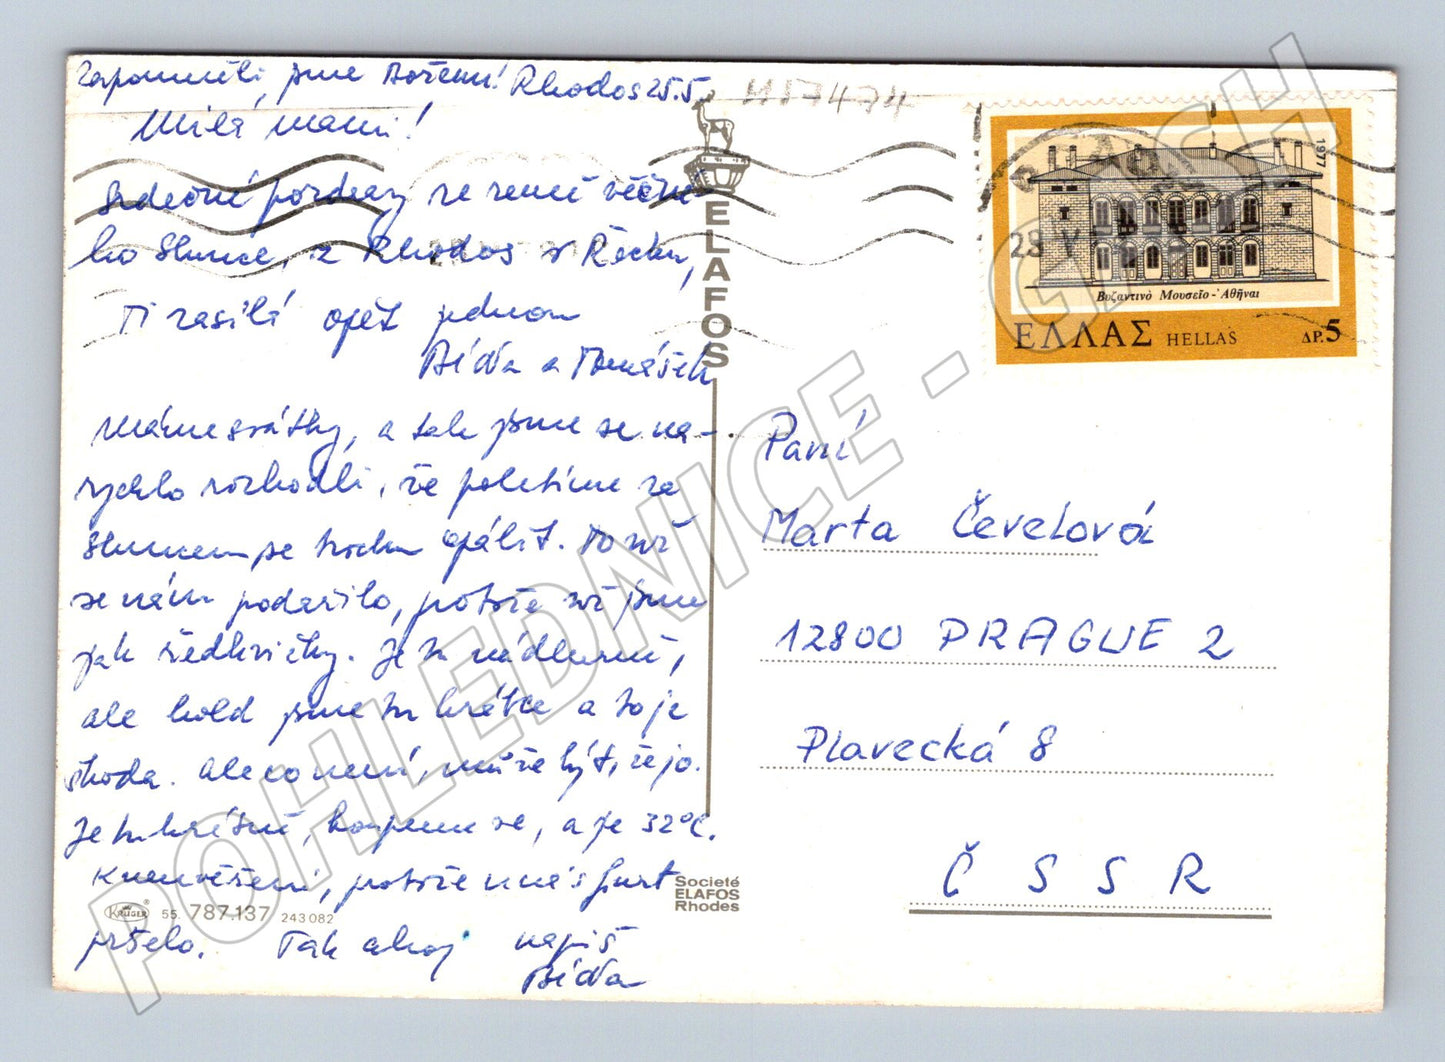 Zapomněli jsme Bořemu! Rhodos 25.5.
Milá mami!
Srdečné pozdravy ze země věčné
ho slunce, z Rhodos v Řecku,
Ti zasílá opět jednou
Áďa a Tomášek
Máme svátky, a tak jsme se na-
rychlo rozhodli, že poletíme za
sluncem se trochu opálit. To už
se nám podařilo, protože už jsme
jak ředkvičky. Je tu nádherně,
ale hold jsme tu krátce a to je
škoda. Ale co není, může být, že jo.
Je tu krásně, koupeme se, a je 32°C.
K neuvěření, protože u nás furt
pršelo. Tak ahoj napiš
Áďa
M57474
ELAFOS
Societé
ELAFOS
Rhodes
KRÜGER ® 55. 787.137 243 082
1977
28 V
Βυζαντινὸ Μουσεῖο - Ἀθῆναι
ΕΛΛΑΣ HELLAS ΔΡ. 5
Paní
Marta Čevelová
12800 PRAGUE 2
Plavecká 8
Č S S R
POHLEDNICE - CZECH